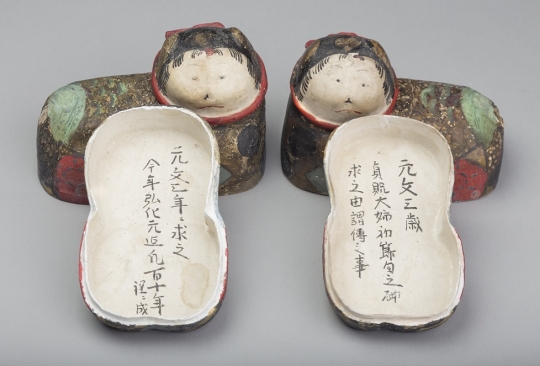 元文三歳
貞既大姉初節句之砌
求之由謂傳之事
元文乙年ニ求之
今年弘化元迄凡百十年
程ニ成